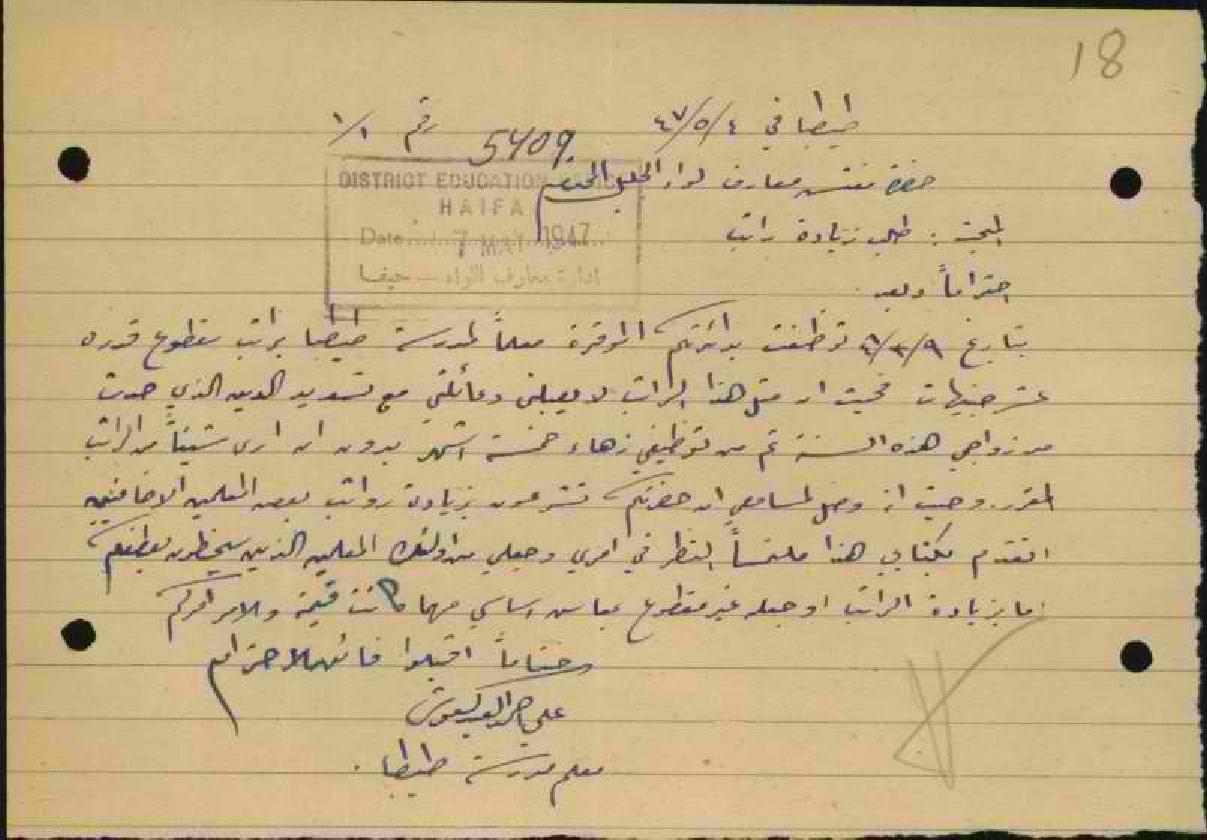 18
طيطبا في ٤/٥/٤٧
رقم ١/١
5409
حضرة مفتش معارف لواء الجليل المحترم
DISTRICT EDUCATION
HAIFA
Date 7 MAY 1947
ادارة معارف اللواء — حيفا
المبحث : طلب زيادة راتب
احتراماً وبعد .
بتاريخ توظفت بدائرتكم الموقرة معلماً لمدرسة طيطبا براتب مقطوع قدره
عشر جنيهات فحيث ان مثل هذا الراتب لا يعيلني وعائلتي مع تسديد الدين الذي حدث
من زواجي هذه السنة ثم من توظيفي زهاء خمسة اشهر بدون ان ارى شيئاً من الراتب
المقرر. وحيث انه وصل لمسامعي ان حضرتكم تشرعون بزيادة رواتب بعض المعلمين الاضافيين
اتقدم بكتابي هذا ملتمساً النظر في امري وجعلي من اولئك المعلمين الذين سيحظون بعطفكم
اما بزيادة الراتب او جعله غير مقطوع بمعاش اساسي مهما كانت قيمته والامر امركم
وختاماً اقبلوا فائق الاحترام
علي
معلم مدرسة طيطبا .